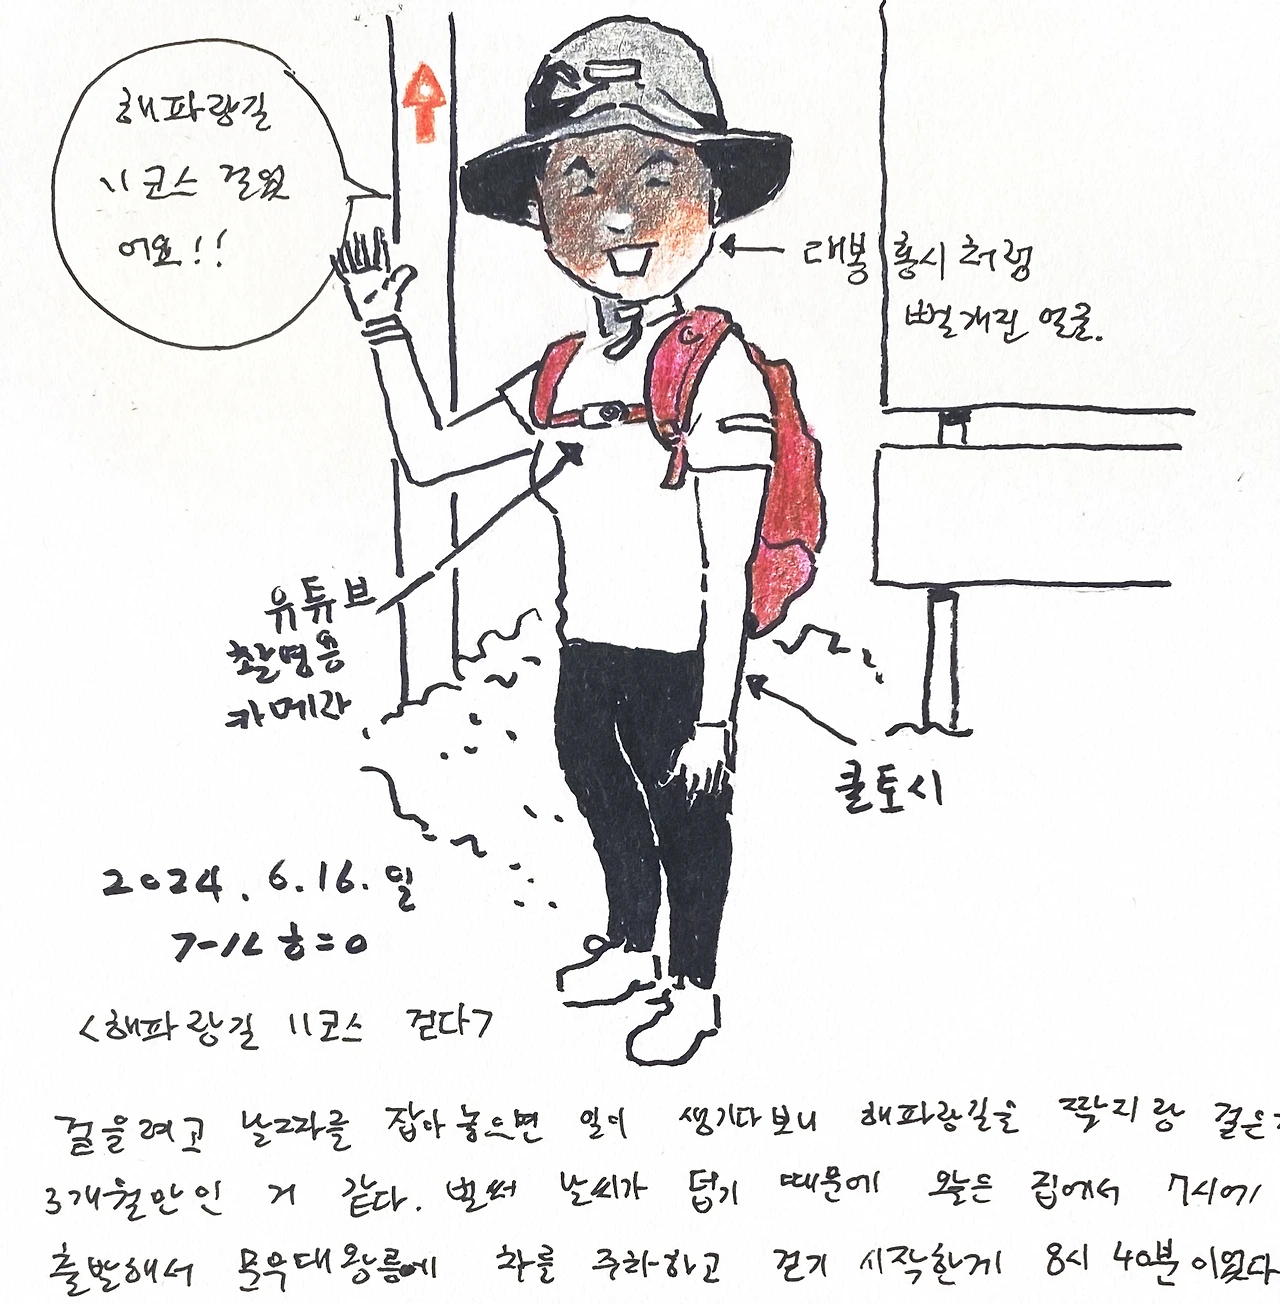 해파랑길
11코스 걸었
어요!!
대봉 홍시처럼
뻘개진 얼굴.
유튜브
촬영용
카메라
쿨토시
2024. 6. 16. 일
<해파랑길 11코스 걷다>
걸을려고 날짜를 잡아 놓으면 일이 생기다보니 해파랑길을 짝지랑 걸은
3개월만인 거 같다. 벌써 날씨가 덥기 때문에 오늘은 집에서 7시에
출발해서 문무대왕릉에 차를 주차하고 걷기 시작한게 8시 40분이었다